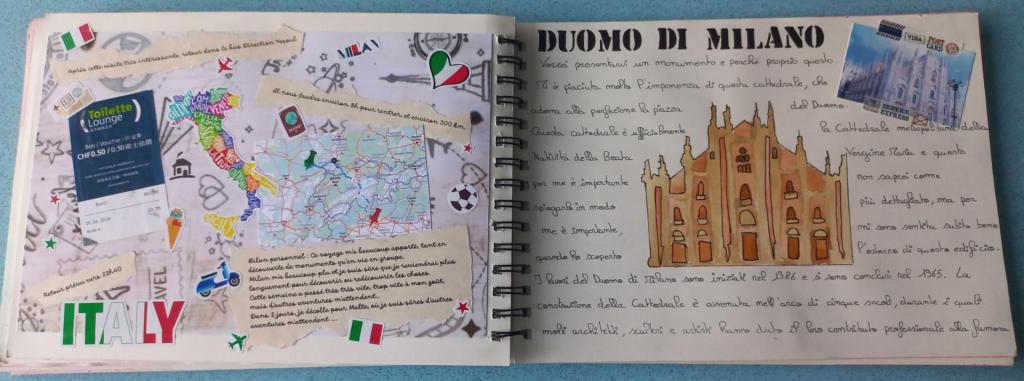 Après cette visite très intéressante, retour dans le bus direction Vesoul
MILAN
Il nous faudra environ 8h pour rentrer, et environ 500 km.
Toilette
Lounge
Bon / Voucher
CHF0.50 / 0.50 瑞士法郎
Retour prévu vers 22h40
Bilan personnel : Ce voyage m'a beaucoup apporté, tant en
découverte de monuments qu'en vie en groupe.
Milan m'a beaucoup plu et je suis sûre que je reviendrai plus
longuement pour découvrir ou redécouvrir les choses.
Cette semaine a passé très très vite, trop vite à mon goût,
mais d'autres aventures m'attendent...
Dans 2 jours, je décolle pour Malte, où je suis sûre d'autres
aventures m'attendent ...
ITALY
DUOMO DI MILANO
POST
CARD
SERVICE
EXPRESS
Vorrei presentarvi un monumento e perché proprio questo.
Mi è piaciuta molto l'imponenza di questa cattedrale, che
adorna alla perfezione la piazza del Duomo.
Questa cattedrale è ufficialmente la Cattedrale metropolitana della
Natività della Beata Vergine Maria e questo
per me è importante non saprei come
spiegarlo in modo più dettagliato, ma per
me è importante, mi sono sentita subito bene
quando ho scoperto l'esterno di questo edificio.
I lavori del Duomo di Milano sono iniziati nel 1386 e si sono conclusi nel 1965. La
costruzione della Cattedrale è avvenuta nell'arco di cinque secoli, durante i quali
molti architetti, scultori e artisti hanno dato il loro contributo professionale alla famosa